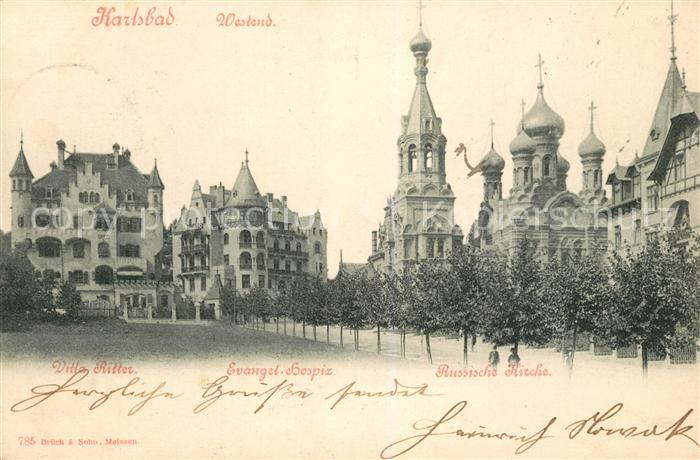 Karlsbad Westend.
Villa Ritter. Evangel. Hospiz Russische Kirche.
Herzliche Grüße sendet
Heinrich Nowak
785 Brück & Sohn, Meissen.